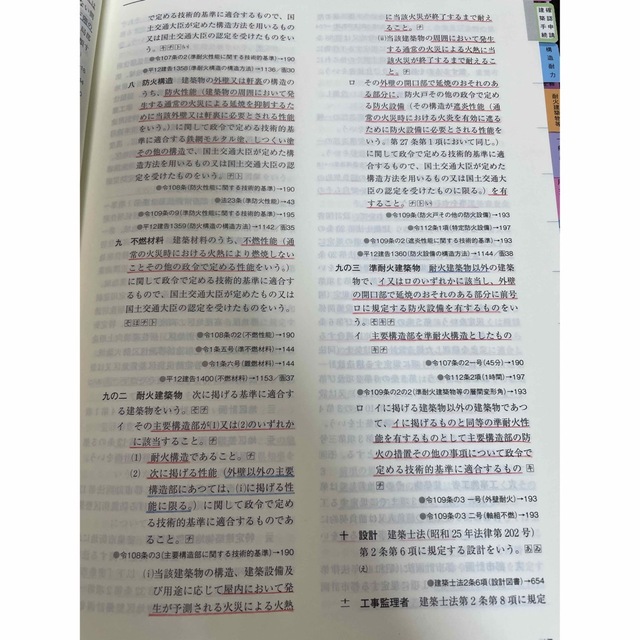 で定める技術的基準に適合するもので、国
土交通大臣が定めた構造方法を用いるもの
又は国土交通大臣の認定を受けたものをい
う。
●令107条の2(準耐火性能に関する技術的基準)→190
●平12建告1358(準耐火構造の構造方法)→1136/函30
八 防火構造 建築物の外壁又は軒裏の構造の
うち、防火性能（建築物の周囲において発
生する通常の火災による延焼を抑制するた
めに当該外壁又は軒裏に必要とされる性能
をいう。）に関して政令で定める技術的基
準に適合する鉄網モルタル塗、しつくい塗
その他の構造で、国土交通大臣が定めた構
造方法を用いるもの又は国土交通大臣の認
定を受けたものをいう。
●令108条(防火性能に関する技術的基準)→190
●法23条(準防火性能)→43
●令109条の9(準防火性能に関する技術的基準)→195
●平12建告1359(防火構造の構造方法)→1142/函35
九 不燃材料 建築材料のうち、不燃性能（通
常の火災時における火熱により燃焼しない
ことその他の政令で定める性能をいう。）
に関して政令で定める技術的基準に適合す
るもので、国土交通大臣が定めたもの又は
国土交通大臣の認定を受けたものをいう。
●令108条の2(不燃性能)→190
●令1条五号(準不燃材料)→144
●令1条六号(難燃材料)→144
●平12建告1400(不燃材料)→1153/函37
九の二 耐火建築物 次に掲げる基準に適合す
る建築物をいう。
イ その主要構造部が(1)又は(2)のいずれか
に該当すること。
(1) 耐火構造であること。
(2) 次に掲げる性能（外壁以外の主要
構造部にあつては、(i)に掲げる性
能に限る。）に関して政令で定める
技術的基準に適合するものであるこ
と。
●令108条の3(主要構造部に関する技術的基準)→190
(i) 当該建築物の構造、建築設備及
び用途に応じて屋内において発
生が予測される火災による火熱
に当該火災が終了するまで耐え
ること。
(ii) 当該建築物の周囲において発生
する通常の火災による火熱に当
該火災が終了するまで耐えるこ
と。
ロ その外壁の開口部で延焼のおそれのあ
る部分に、防火戸その他の政令で定め
る防火設備（その構造が遮炎性能（通
常の火災時における火炎を有効に遮る
ために防火設備に必要とされる性能を
いう。第27条第1項において同じ。）
に関して政令で定める技術的基準に適
合するもので、国土交通大臣が定めた
構造方法を用いるもの又は国土交通大
臣の認定を受けたものに限る。）を有
すること。
●令109条(防火戸その他の防火設備)→193
●令112条1項(特定防火設備)→197
●令109条の2(遮炎性能に関する技術的基準)→193
●平12建告1360(防火設備の構造方法)→1144/函38
九の三 準耐火建築物 耐火建築物以外の建築
物で、イ又はロのいずれかに該当し、外壁
の開口部で延焼のおそれのある部分に前号
ロに規定する防火設備を有するものをい
う。
イ 主要構造部を準耐火構造としたもの
●令107条の2一号(45分)→190
●令112条2項(1時間)→197
●令109条の2の2(準耐火建築物等の層間変形角)→193
ロ イに掲げる建築物以外の建築物であつ
て、イに掲げるものと同等の準耐火性
能を有するものとして主要構造部の防
火の措置その他の事項について政令で
定める技術的基準に適合するもの
●令109条の3 一号(外壁耐火)→193
●令109条の3 二号(軸組不燃)→193
十 設計 建築士法（昭和25年法律第202号）
第2条第6項に規定する設計をいう。
●建築士法2条6項(設計図書)→654
十一 工事監理者 建築士法第2条第8項に規定
確認申請
建築手続
構造耐力
耐火建築物等